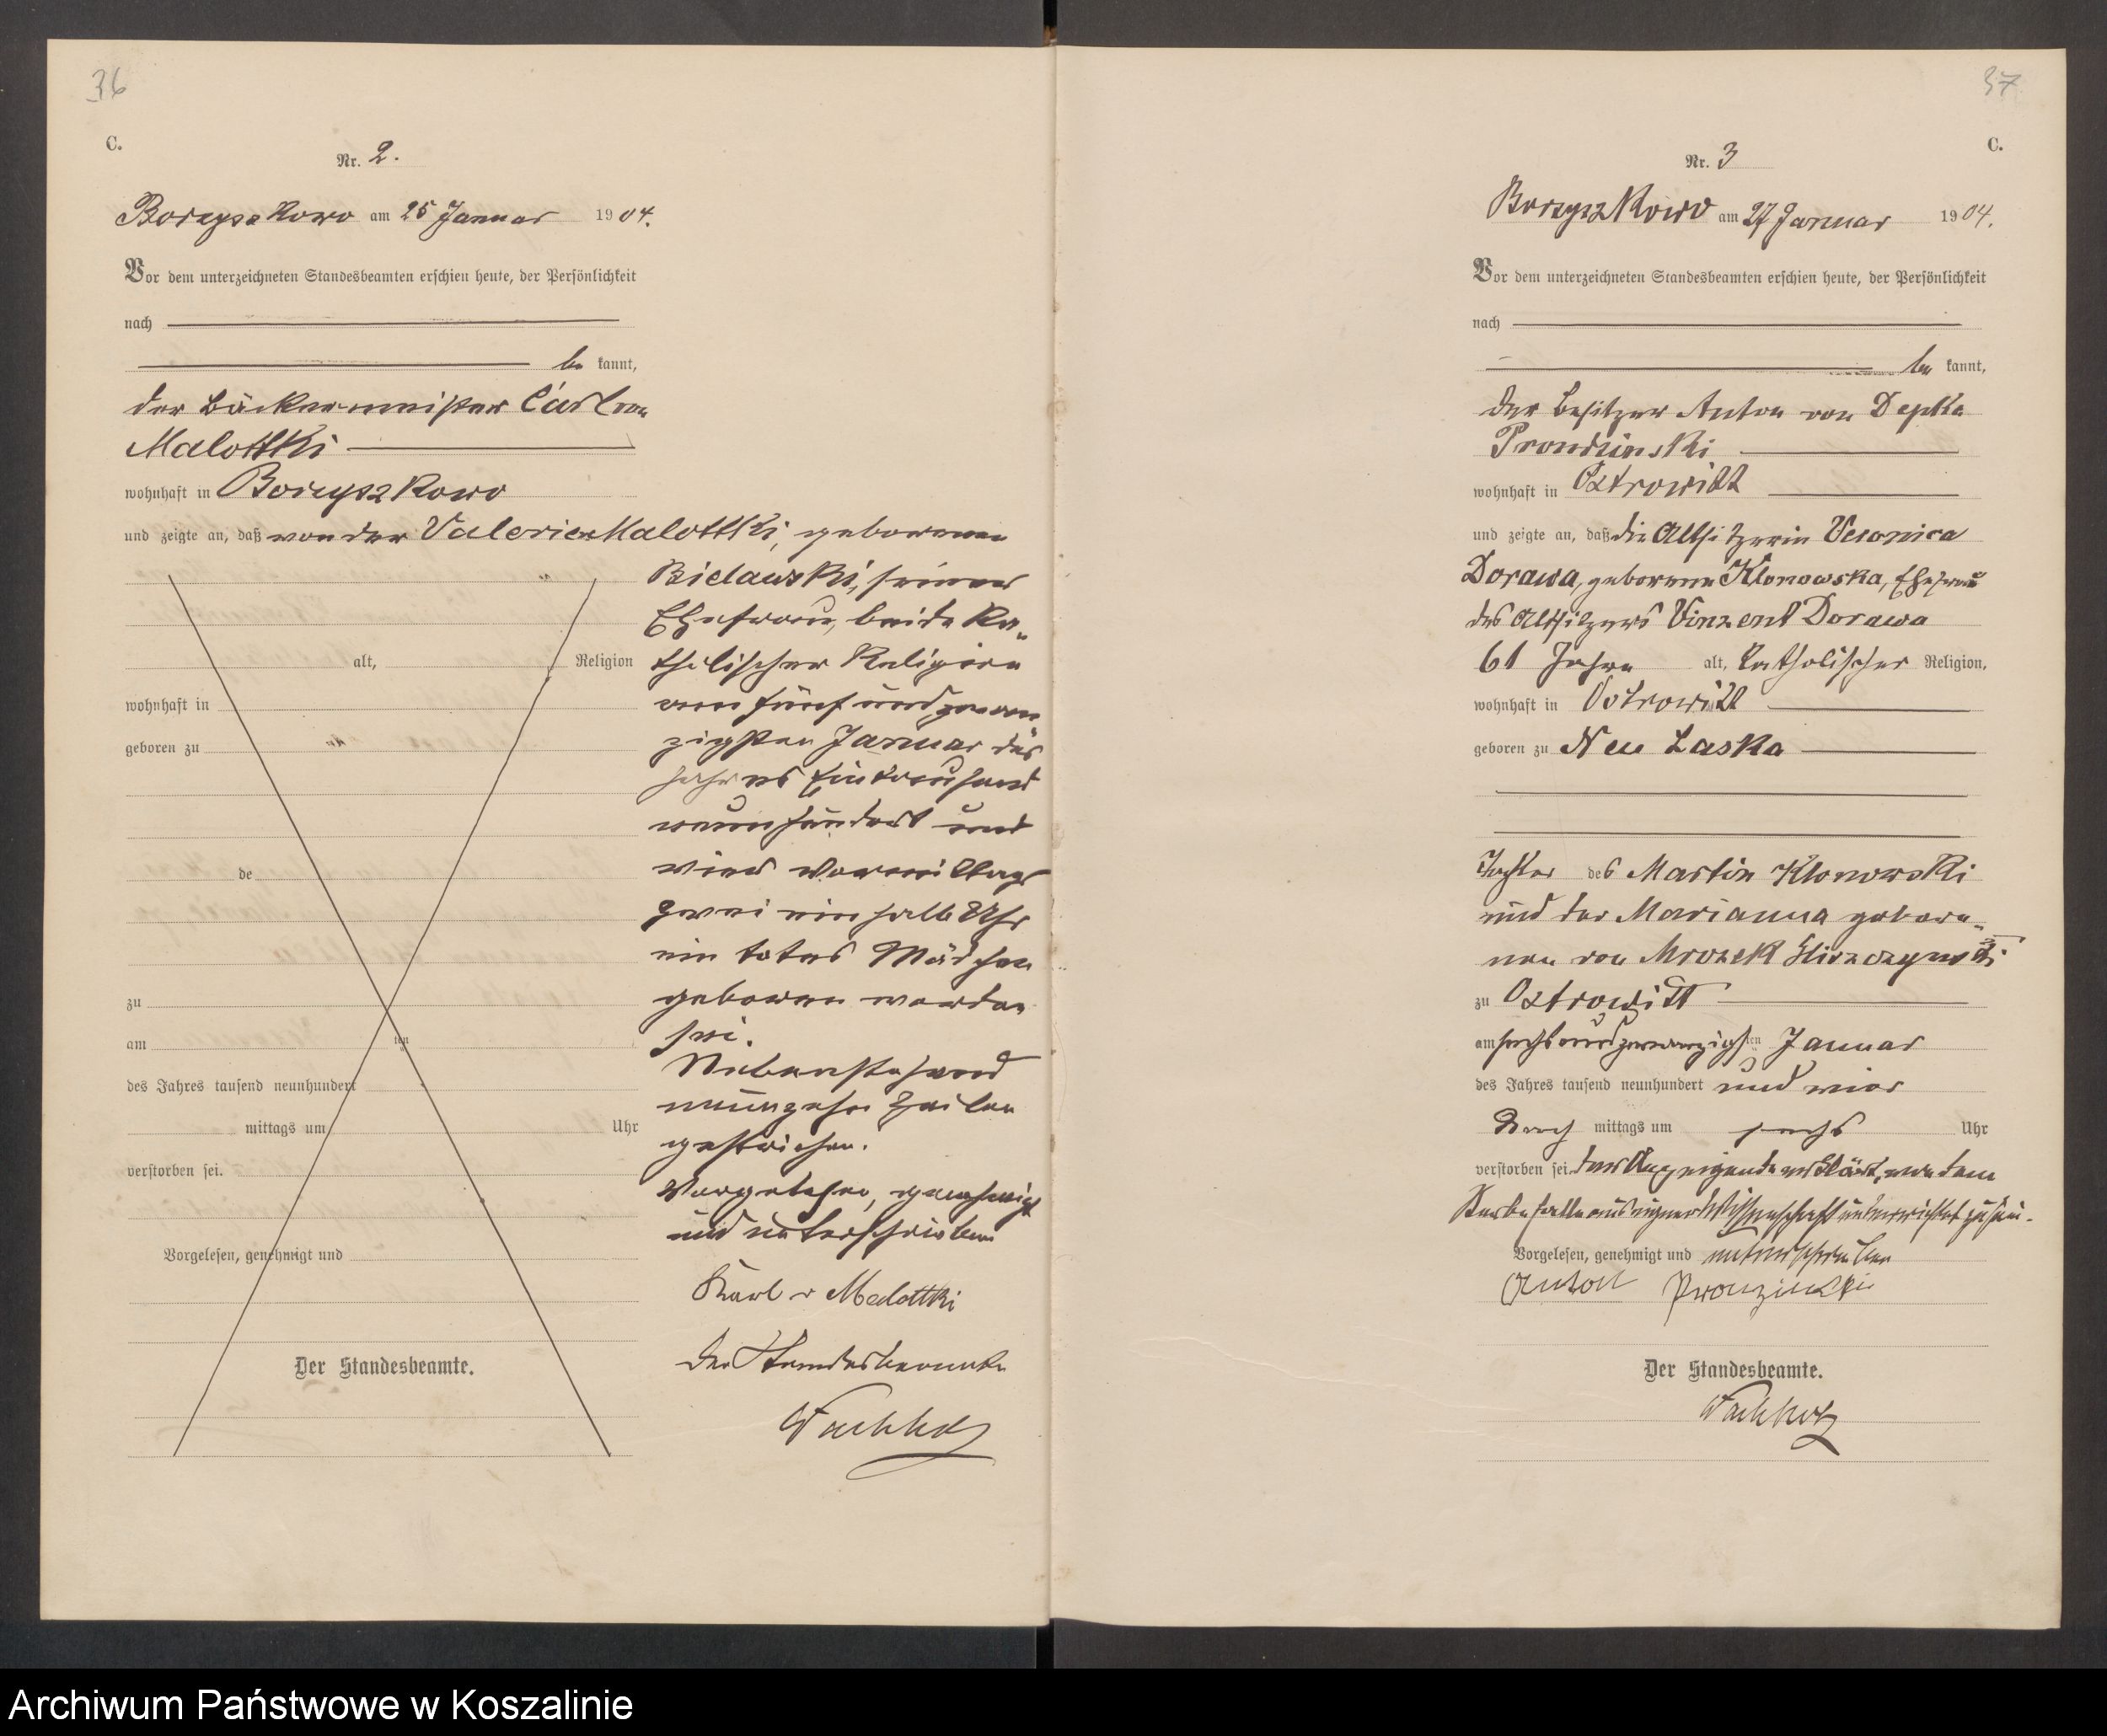 36
C.
Nr. 2.
Borzyszkowo am 25 Januar 1904.
Vor dem unterzeichneten Standesbeamten erschien heute, der Persönlichkeit
nach
be kannt,
der Bäckermeister Carl von
Malottki
wohnhaft in Borzyszkowo
und zeigte an, daß von der Valeria Malottki, geborenen
Bielawski, seiner
Ehefrau, beide ka-
alt, Religion tholischer Religion
wohnhaft in am fünf und zwan
geboren zu zigsten Januar des
Jahres Eintausend
neunhundert und
de vier Vormittags
zwei ein halb Uhr
ein totes Mädchen
zu geboren worden
am ten sei.
Nebenstehend
des Jahres tausend neunhundert neunzehn Zeilen
mittags um Uhr gestrichen.
verstorben sei. Vorgelesen, genehmigt
und unterschrieben
Vorgelesen, genehmigt und
Karl v Malottki
Der Standesbeamte. Der Standesbeamte
37
C.
Nr. 3
Borzyszkowo am 27 Januar 1904.
Vor dem unterzeichneten Standesbeamten erschien heute, der Persönlichkeit
nach
be kannt,
der Besitzer Anton von Depka
Prondzinski
wohnhaft in Ostrowitt
und zeigte an, daß die Altsitzerin Veronica
Dorawa, geborene Klonowska, Ehefrau
des Altsitzers Vinzent Dorawa
61 Jahre alt, katholischer Religion,
wohnhaft in Ostrowitt
geboren zu Neu Laska
Tochter des Martin Klonowski
und der Marianna gebore-
nen von Mrozek Gliszczynski
zu Ostrowitt
am sechsundzwanzigsten Januar
des Jahres tausend neunhundert und vier
Nach mittags um sechs Uhr
verstorben sei. Der Anzeigende erklärt, von dem
Sterbefalle aus eigener Wissenschaft unterrichtet zu sein.
Vorgelesen, genehmigt und unterschrieben
Anton Pronzinski
Der Standesbeamte.
Archiwum Państwowe w Koszalinie